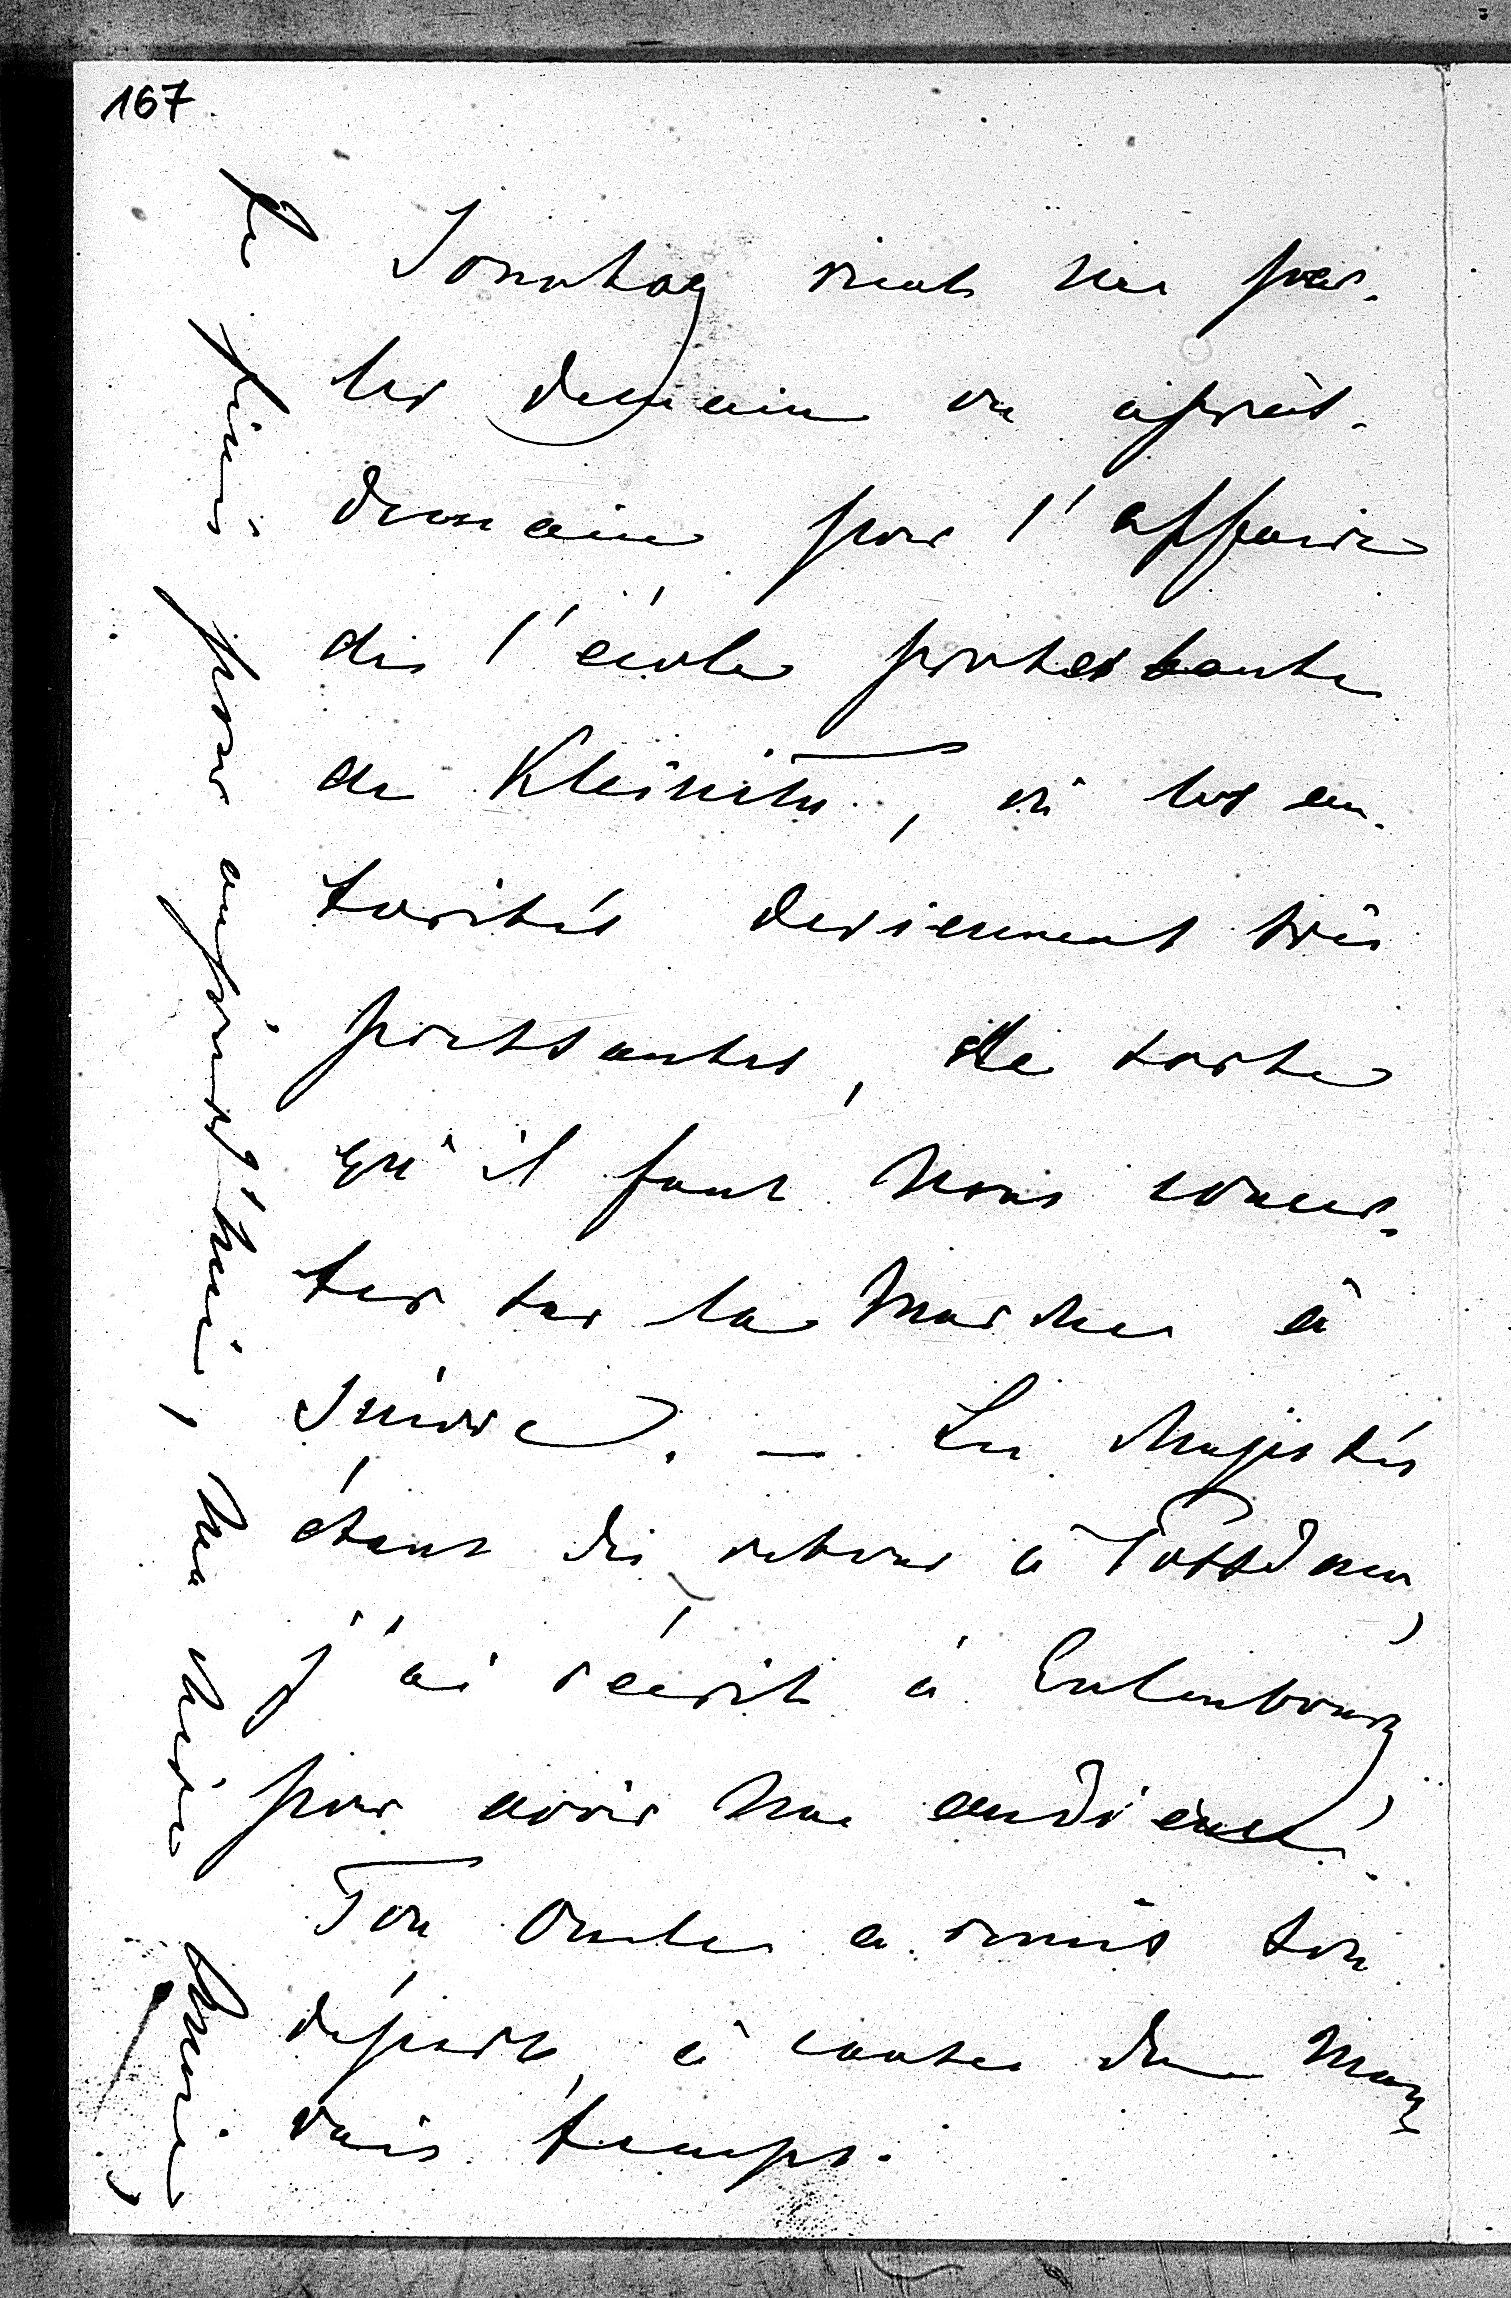 167
Sonntag vient me par-
ler demain ou après-
demain pour l'affaire
de l'école protestante
de Kleinitz, où les au-
torités deviennent très
pressantes, de sorte
qu'il faut nous concer-
ter sur la marche à
suivre. — Les Majestés
étant de retour à Potsdam,
j'ai récrit à Eulenbourg
pour avoir une audience.
Ton Oncle a remis son
départ, à cause du mau-
vais temps.
Je finis pour aujourd'hui, ma chère Marie,